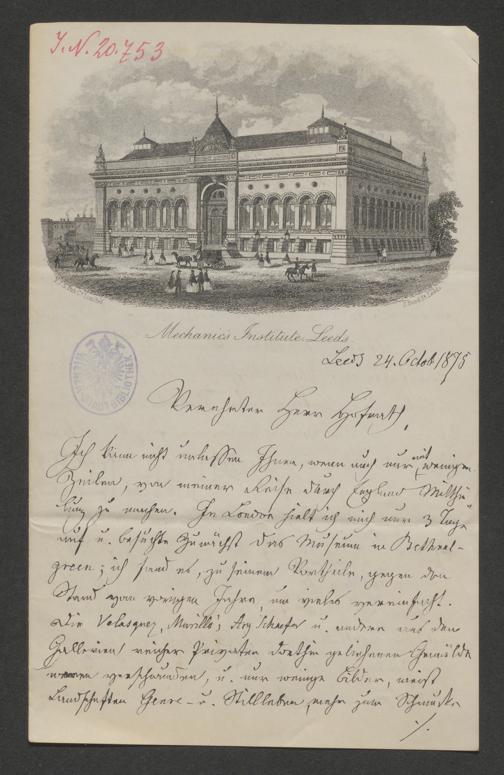 J. N. 20.753
Mechanics Institute Leeds
Leeds 24. Octob 1875
Verehrter Herr Hofrath,
Ich kann nicht unlassen Ihnen, wenn auch nur mit wenigen
Zeilen, von meiner Reise durch England Mitthei-
lung zu machen. In London hielt ich mich nur 3 Tage
auf u. besuchte zunächst das Museum in Bethnal-
green; ich fand es, zu seinem Vortheile, gegen den
Stand vom vorigen Jahre, um vieles vereinfacht.
Die Velasquez, Murillo, Ary Scheefer u. andere aus den
Gallerien reicher Privaten dorthin geliehenen Gemälde
waren verschwunden, u. nur wenige Bilder, meist
Landschaften Genre- u. Stillleben, mehr zum Schmucke
./.